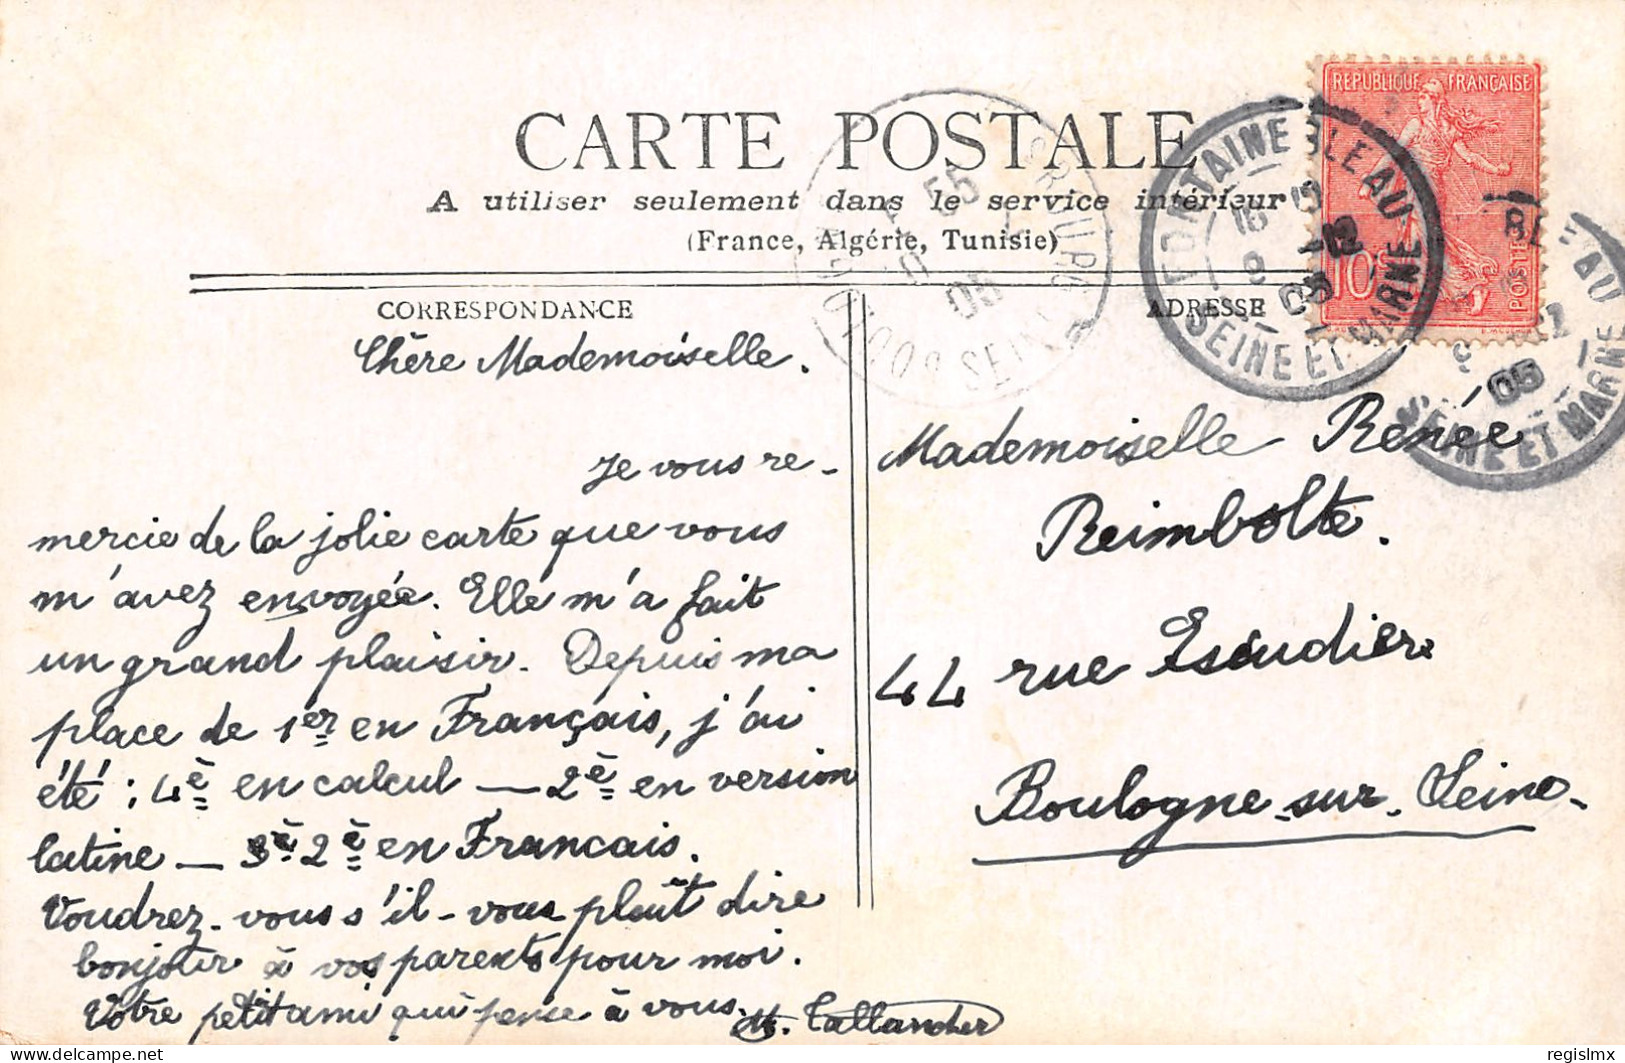 CARTE POSTALE
A utiliser seulement dans le service intérieur
(France, Algérie, Tunisie)
CORRESPONDANCE
Chère Mademoiselle.
Je vous re-
mercie de la jolie carte que vous
m'avez envoyée. Elle m'a fait
un grand plaisir. Depuis ma
place de 1er en Français, j'ai
été : 4è en calcul — 2è en version
latine — 2è en Francais.
Voudrez-vous s'il-vous plaît dire
bonjour à vos parents pour moi.
Votre petit ami qui pense à vous.
M. Tallandier
ADRESSE
Mademoiselle Renée
Reimbolte.
44 rue Escudier
Boulogne-sur-Seine-
REPUBLIQUE FRANÇAISE
10
POSTES
FONTAINEBLEAU
SEINE ET MARNE
05
EAU
SEINE ET MARNE
05
BOULOGNE
SEINE
05
delcampe.net
regislmx